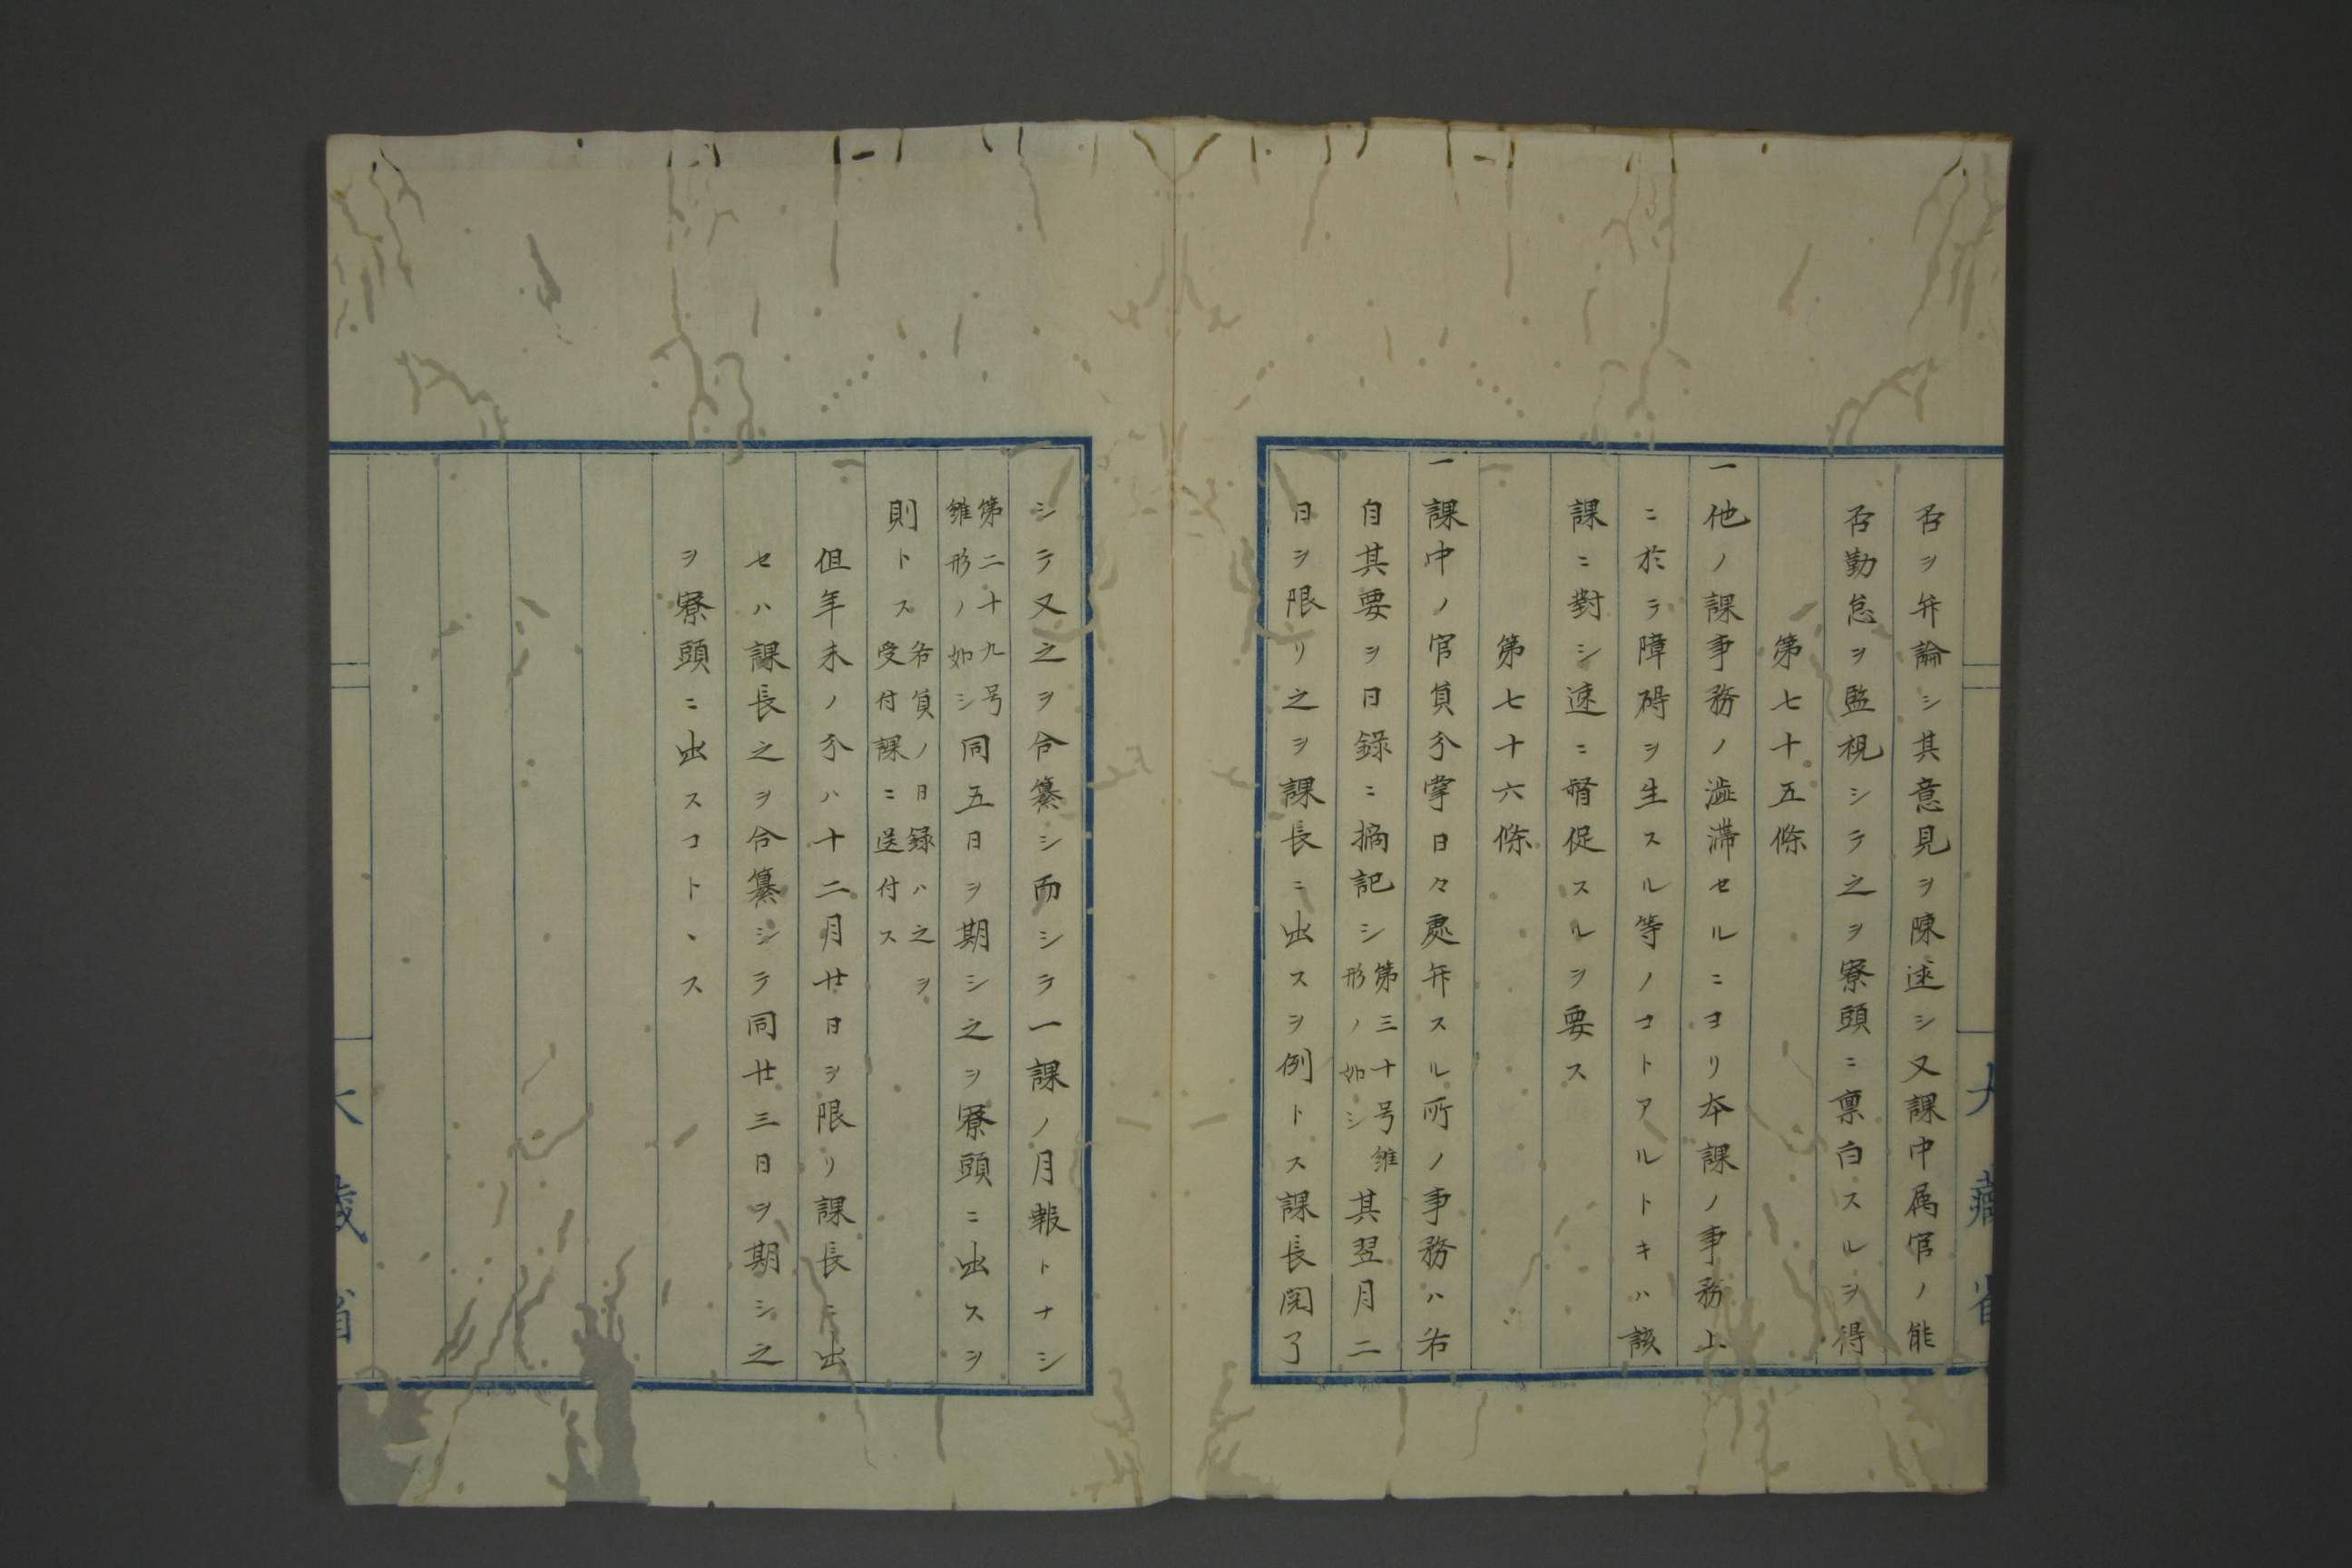 否ヲ弁論シ其意見ヲ陳述シ又課中属官ノ能
否勤怠ヲ監視シテ之ヲ寮頭ニ稟白スルヲ得
第七十五條
一他ノ課事務ノ澁滞セルニヨリ本課ノ事務上
ニ於テ障碍ヲ生スル等ノコトアルトキハ該
課ニ對シ速ニ督促スルヲ要ス
第七十六條
一課中ノ官員分掌日々處弁スル所ノ事務ハ各
自其要ヲ日録ニ摘記シ第三十号雛形ノ如シ其翌月二
日ヲ限リ之ヲ課長ニ出スヲ例トス課長閲了
シテ又之ヲ合纂シ而シテ一課ノ月報トナシ
第二十九号雛形ノ如シ同五日ヲ期シ之ヲ寮頭ニ出スヲ
則トス各員ノ日録ハ之ヲ受付課ニ送付ス
但年末ノ分ハ十二月廿日ヲ限リ課長ニ出
セハ課長之ヲ合纂シテ同廿三日ヲ期シ之
ヲ寮頭ニ出スコトヽス
大藏省
大藏省